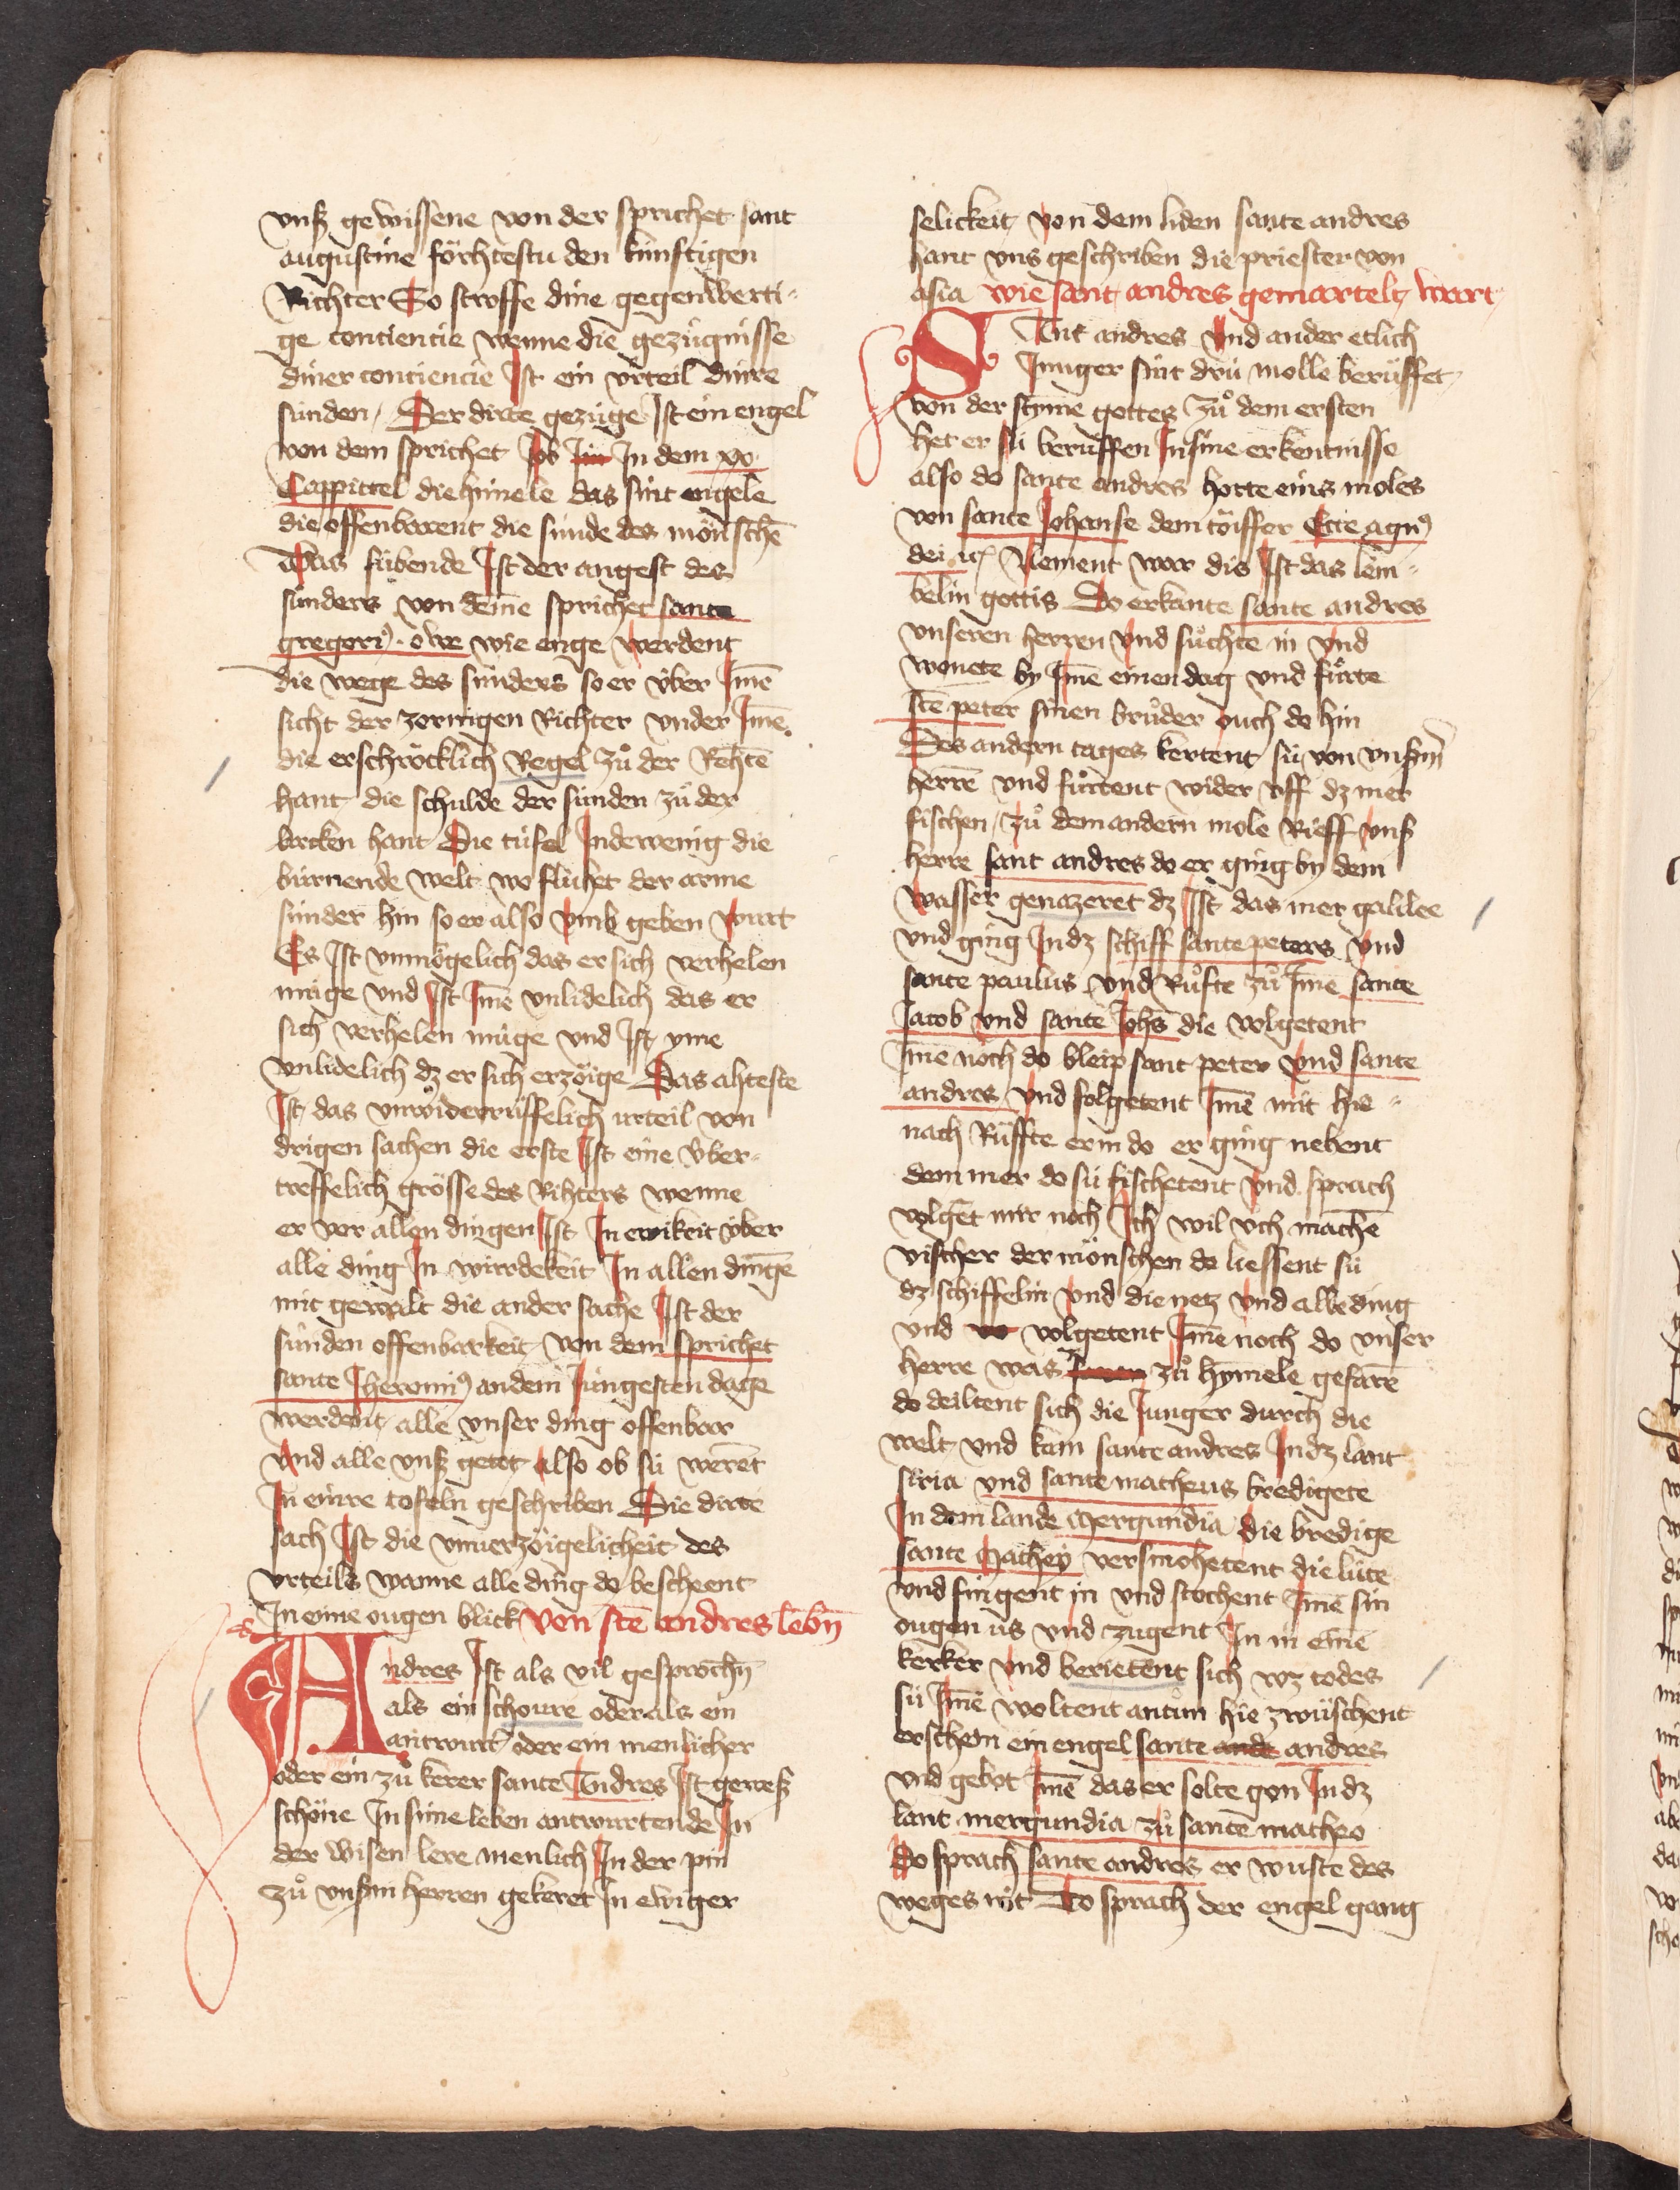 vnß gewissene von der sprichet sant
augustine förchtestu den künftigen
Richter So stroffe dine gegenwerti-
ge contientie wenne die gezügnisse
diner contiencie Ist ein vrteil dinre
sünden / Der dirte gezüge Ist ein engel
von dem sprichet Job Im In dem xx
Cappittel die himele das sint engele
die offenbarent die sünde des mönschē
Das sübende Ist der angest des
sünders von deme sprichet sante
gregoriꝰ · owe wie enge werdent
die wege des sünders so er über Imē
sicht der zornigen Richter vnder Imē
die erschröcklich Regel zuͦ der Rehtē
hant die schulde der sünden zuͦ der
lincken hant Die tüfel Indewenig die
bürnende welt wo flühet der arme
sünder hin so er also vmb geben wurt
Es Ist vnmögelich das er sich verhelen
müge vnd Ist Imē vnlidelich das er
sich verhelen müge vnd Ist yme
vnlidelich dz er sich erzöige Das ahteste
Ist das vnwiderrüffelich urteil von
drigen sachen die erste Ist eine über-
treffelich grösse des Rihters wenne
er vor allen dingen Ist In ewikeit über
alle ding In wirdekeit In allen dingē
mit gewalt die ander sache Ist der
sünden offenbarkeit von dem sprichet
sante Jheronimꝰ an dem Jüngesten dage
werdent alle vnser ding offenbar
vnd alle vnß getot also ob sü werēt
In einre tofeln geschriben Die dirte
sach Ist die vnuerzöigelicheit des
vrteils wanne alle ding do bescheent
In eime ougen blick von stē andres lebn̄
Andres Ist als vil gesprochn̄
als ein schoure oder als ein
antwurt oder ein menlicher
oder ein zuͦ kerer sante Andres Ist geweß
schöne In sime leben antwurtende In
der wisen lere menlich In der pin
zuͦ vnßm herren gekeret In ewiger
selickeit von dem liden sante andres
hant vns geschriben die priester von
asia wie sant andres gemartelt wart
SAnt andres vnd ander etlich
Junger sint drü molle berüffet
von der styme gottes zuͦ dem ersten
het er sü berüffen In sine erkentnisse
also do sante andres horte eins moles
von sante Johanse dem töiffer Ecce agnꝰ
dei ꝛc Nement war dis Ist das lem-
belin gottis Do erkante sante andres
vnseren herren vnd suͦchte in vnd
wonete by Imē einen dag vnd fuͤrte
stē peter sinen bruͦder ouch do hin
Des andern tages kertent sü von vnßm̄
herrē vnd fuͦrtent wider vff dz mer
fischen / zuͦ dem andern mole Rieff vnß
herre sant andres do er ging by dem
wasser genazeret dz Ist das mer galilee
vnd ging In dz schiff sante peters vnd
sante paulus vnd Ruͦfte zuͦ Ime sante
Jacob vnd sante Johs̄ die volgetent
Ime noch do bleip sant peter vnd sante
andres vnd folgetent Imē mit hie-
nach Rüffte er in do er ging nebent
dem mer do sü fischetent vnd sprach
volget mir noch Ich wil vch machē
vischer der mönschen do liessent sü
dz schiffelin vnd die netz vnd alle ding
vnd vo volgetent Imē noch do vnser
herre was zuͦ hymele gefarē
do deiltent sich die Junger durch die
welt vnd kam sante andres In dz lant
siria vnd sante matheus bredigete
In dem lande mergundia die bredige
sante Mathey versmohetent die lüte
vnd fingent in vnd stochent Imē sin
ougen us vnd zugent In in einē
kerker vnd berietent sich wz todes
sü Imē woltent antün hie zwüschent
erschein ein engel sante ande andres
vnd gebot Imē das er solte gon In dz
lant mergundia zuͦ sante matheo
Do sprach sante andres er wuste des
weges nit Do sprach der engel gang